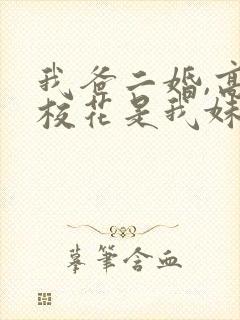 我爸二婚,高
校花是我妹
摹笔含血